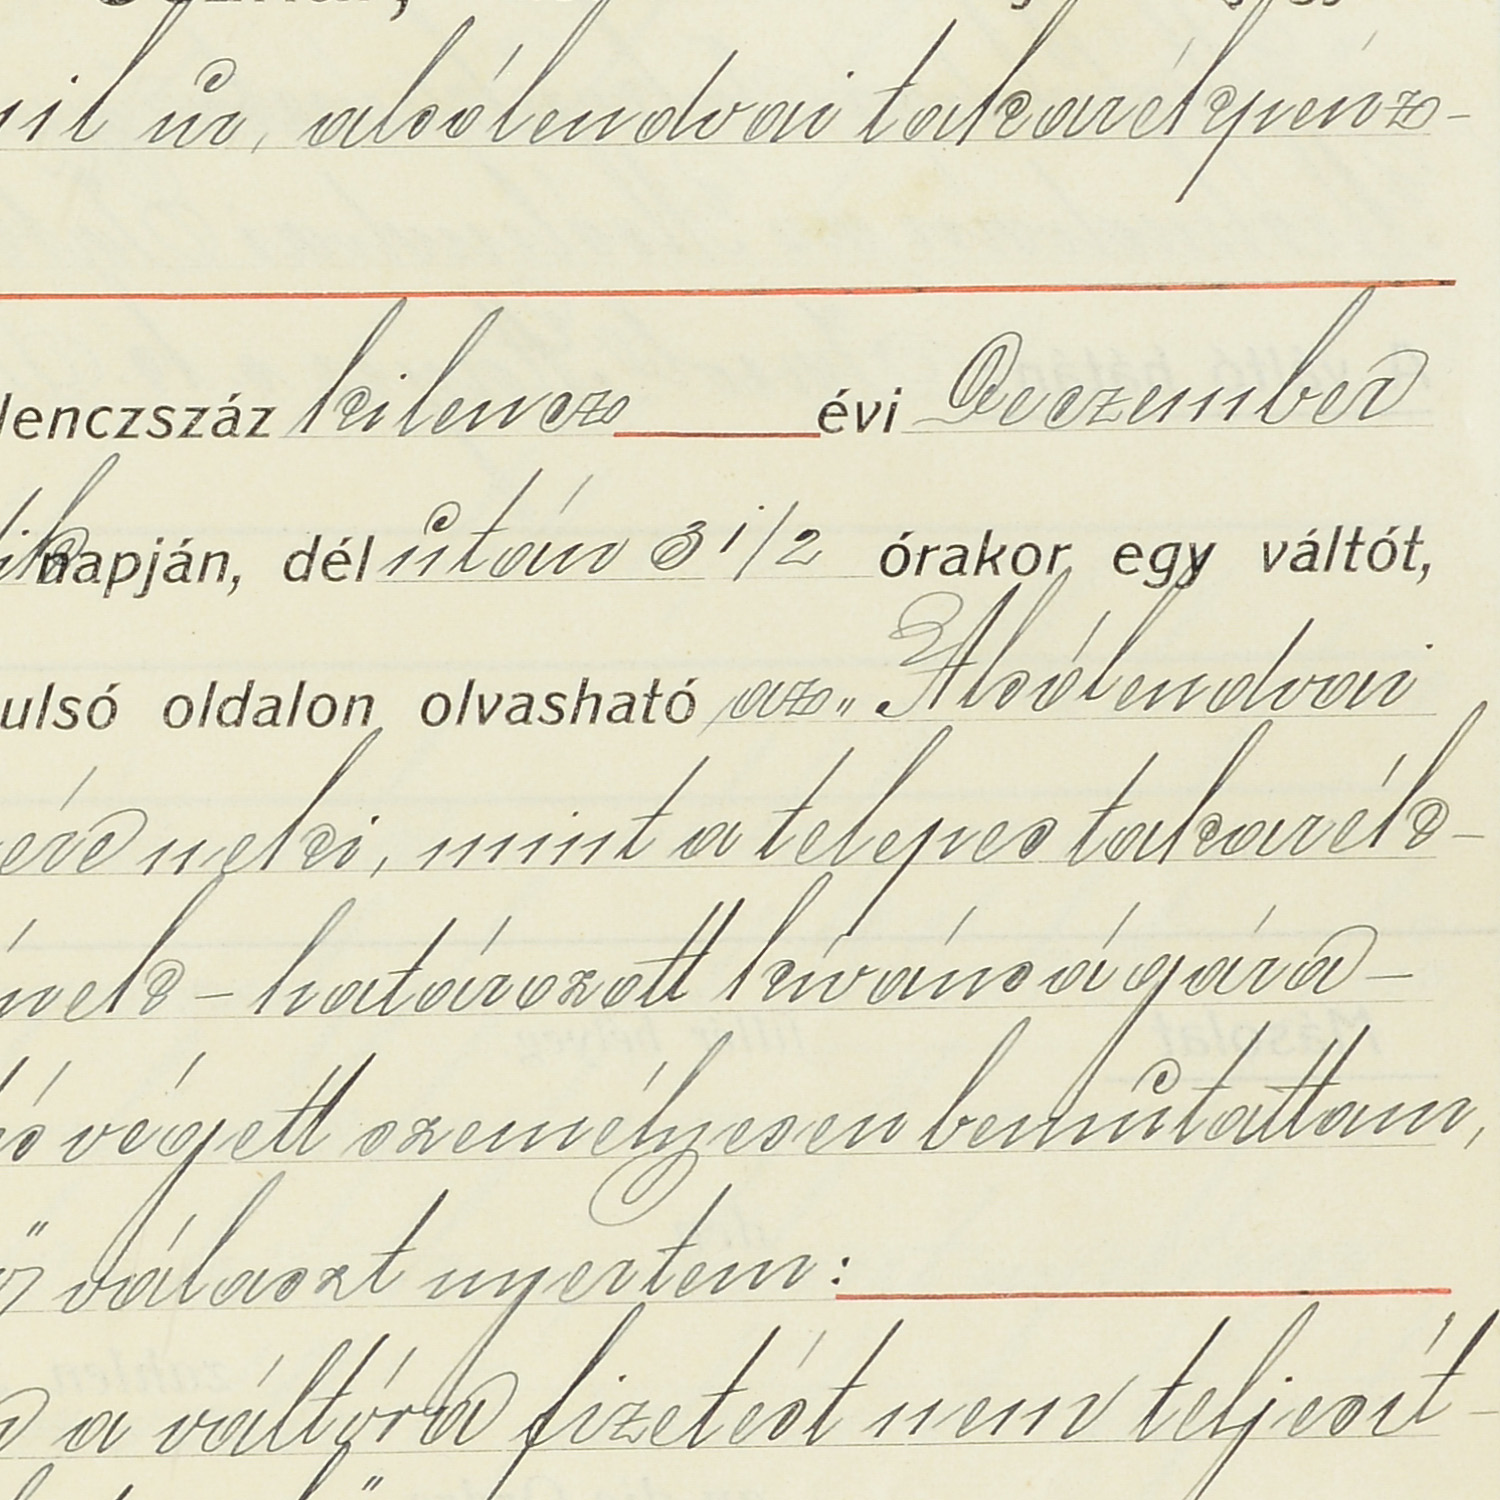 úr, alsólendvai takarékpénz-
lenczszáz kilencz évi Deczember
ik napján, dél után 3 1/2 órakor egy váltót,
ulsó oldalon olvasható az „Alsólendvai
neki, mint a telepes takarék-
nek - határozott kívánságára -
és végett személyesen bemutattam,
választ nyertem:
a váltóra fizetést nem teljesít-